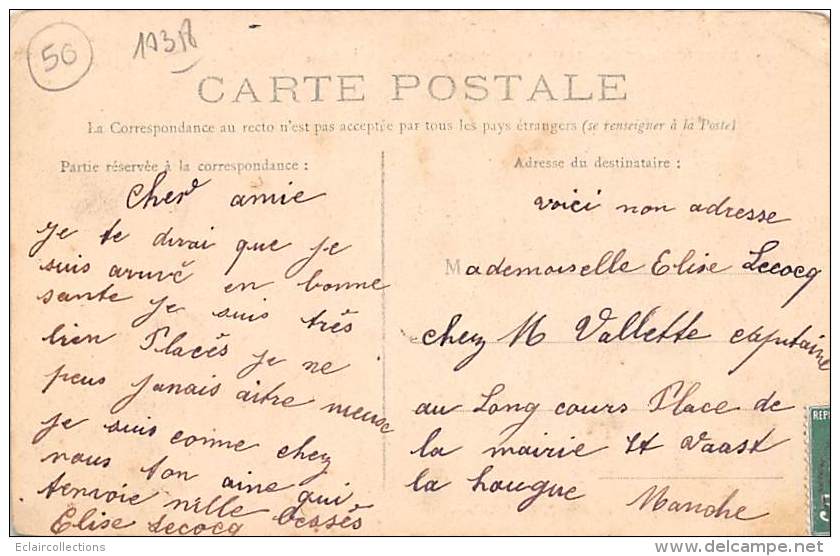 50
10318
CARTE POSTALE
La Correspondance au recto n'est pas acceptée par tous les pays étrangers (se renseigner à la Poste)
Partie réservée à la correspondance :
Cher amie
je te dirai que je
suis aruvé en bonne
sante je suis très
bien Placés je ne
peus jamais aitre meuse
je suis comme chez
nous ton aime qui
t'envoie mille
Elise Lecocq
Adresse du destinataire :
voici non adresse
Mademoiselle Elise Lecocq
chez M Vallette capitaine
au Long cours Place de
la mairie St Vaast
la hougue
Manche
REP
Eclaircollections
delcampe.net